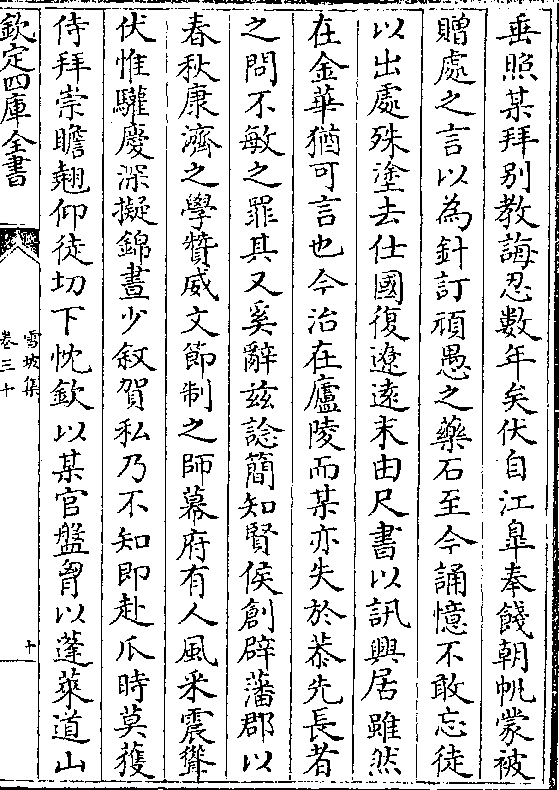 垂照某拜别教誨忍數年矣伏自江臯奉餞朝帆蒙被
贈處之言以為針訂頑愚之藥石至今誦憶不敢忘徒
以出處殊塗去仕國復遼遠末由尺書以訊興居雖然
在金華猶可言也今治在廬陵而某亦失於恭先長者
之問不敏之罪其又奚辭兹諗簡知賢侯創辟藩郡以
春秋康濟之學贊威文節制之師幕府有人風采震聳
伏惟驩慶深擬錦晝少叙賀私乃不知即赴爪時莫獲
侍拜崇瞻翹仰徒切下忱欽以某官盤胷以蓬萊道山
欽定四庫全書
雪坡集
卷三十
十